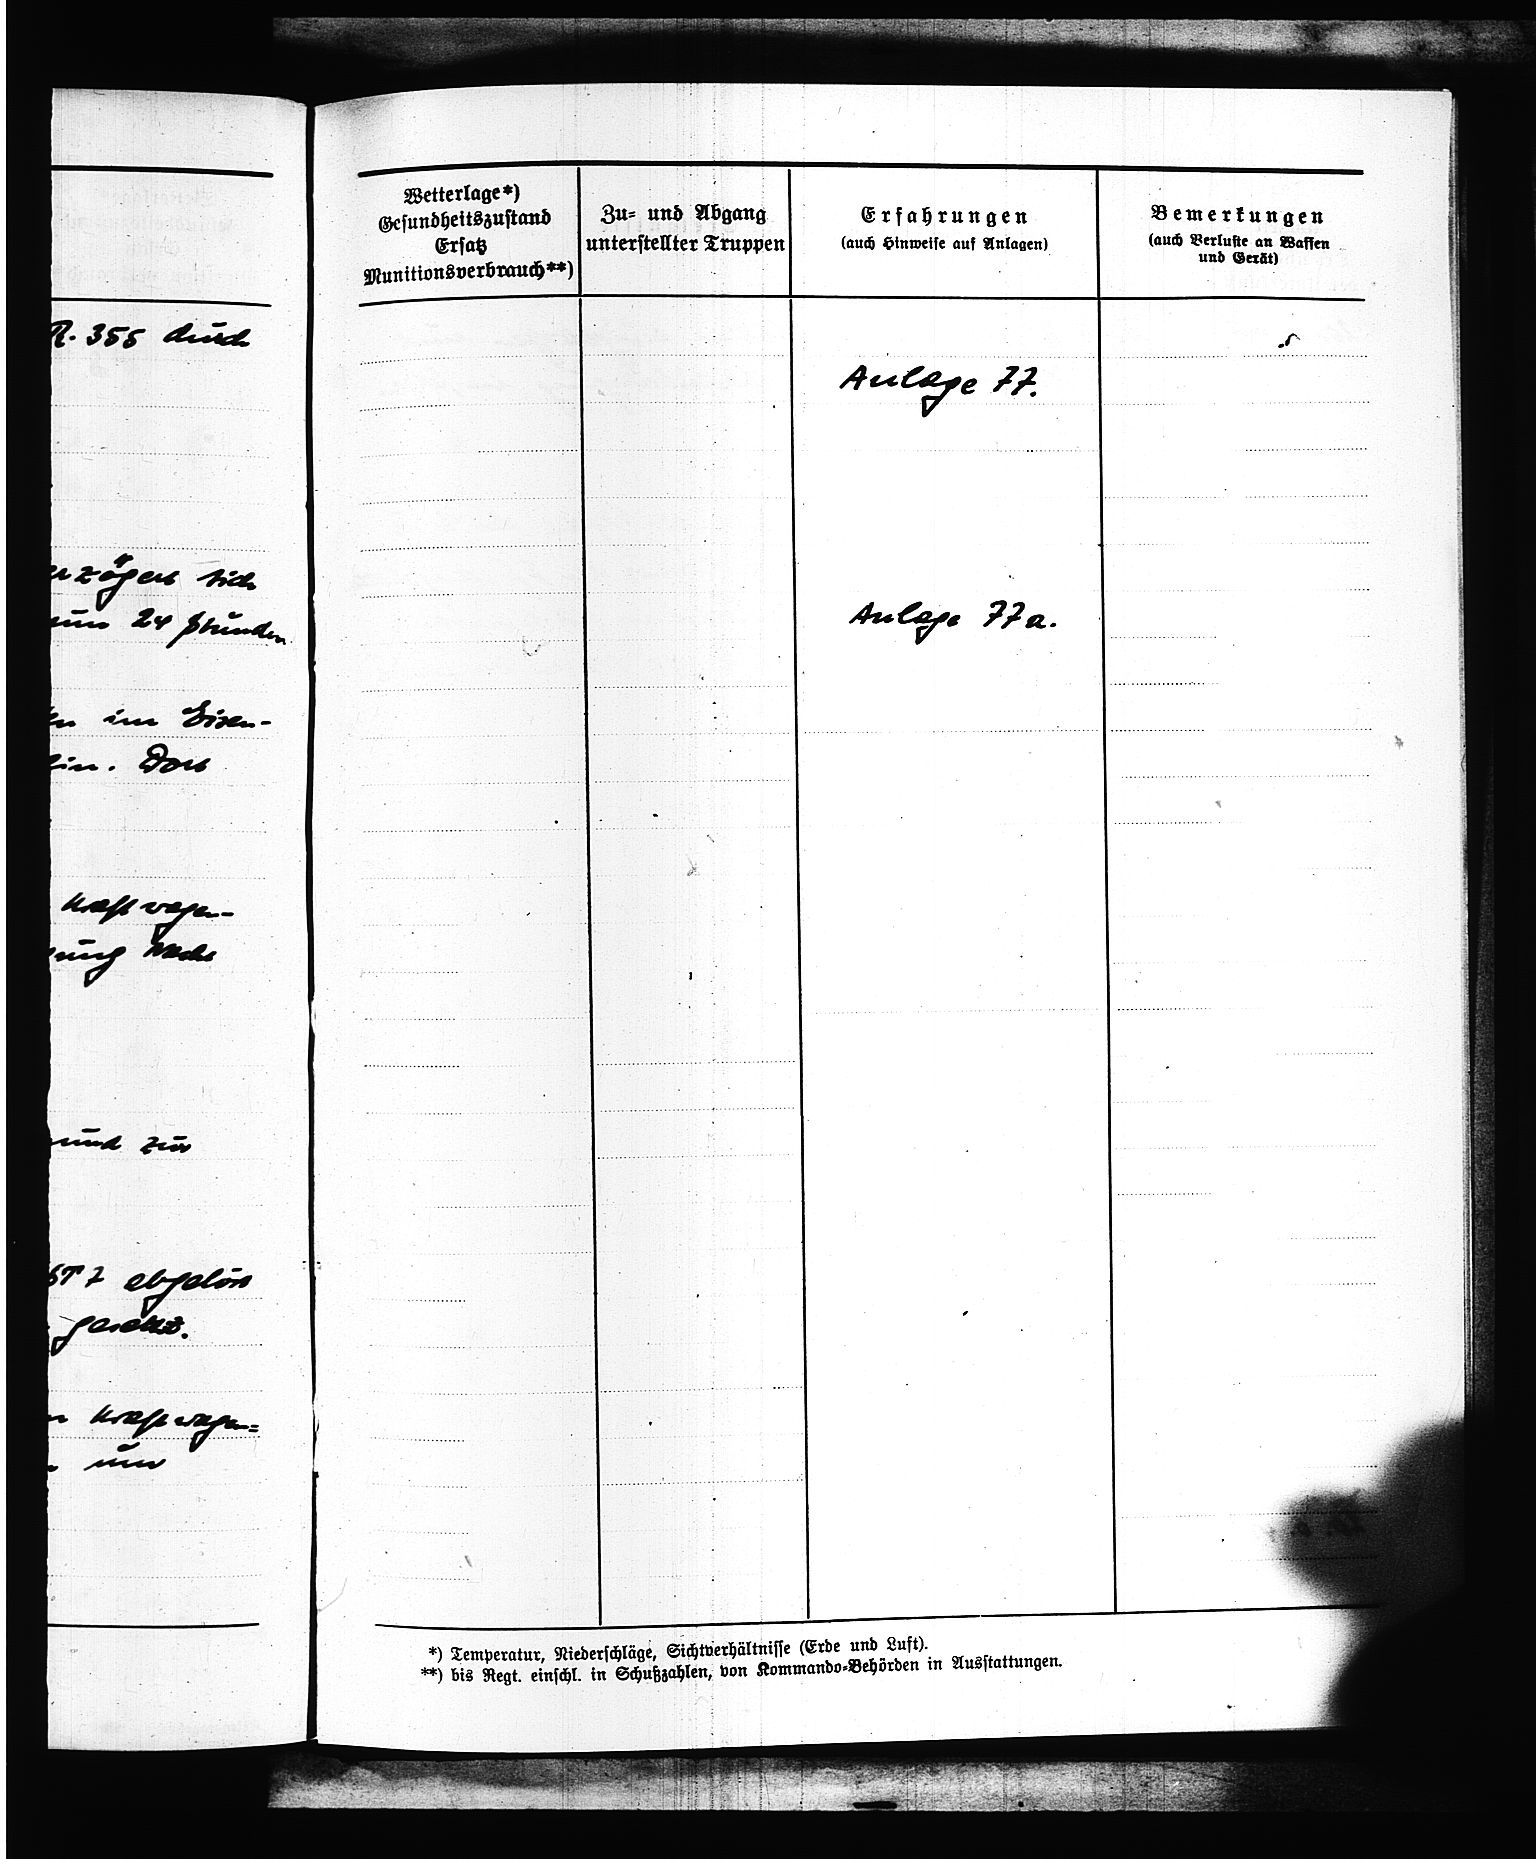 R. 355 durch
erzögert sich
um 24 Stunden
en im Eisen-
lin. Dort
Kraftwagen-
ung Wacht
und zur
ST 7 abgelöst
gesetzt.
n Kraftwagen=
um
Wetterlage*)
Gesundheitszustand
Ersatz
Munitionsverbrauch**)
Zu- und Abgang
unterstellter Truppen
Erfahrungen
(auch Hinweise auf Anlagen)
Bemerkungen
(auch Verluste an Waffen
und Gerät)
Anlage 77.
Anlage 77a.
*) Temperatur, Niederschläge, Sichtverhältnisse (Erde und Luft).
**) bis Regt. einschl. in Schußzahlen, von Kommando-Behörden in Ausstattungen.